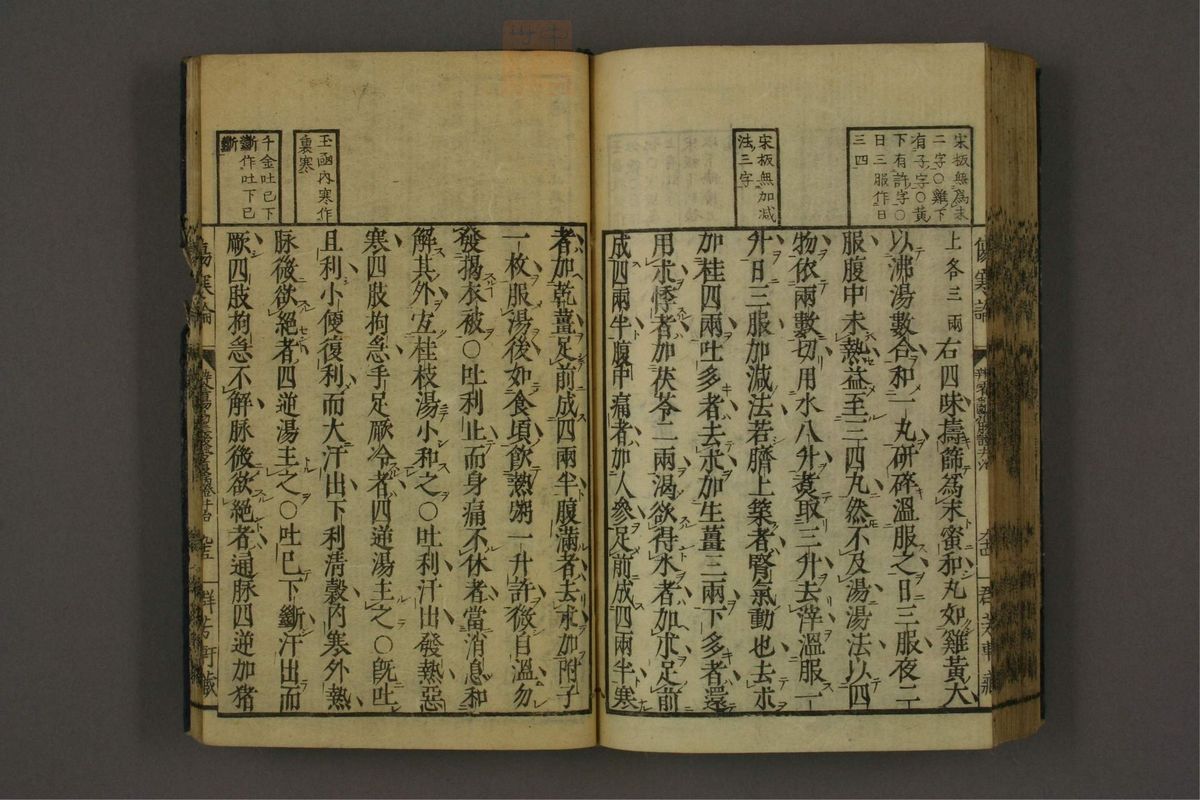 宋板無為末
二字〇雞下
有子字〇黃
下有許字〇
日三服作日
三四
宋板無加减
法三字
上各三兩右四味擣篩為末蜜和丸如雞黃大
以沸湯數合和一丸研碎溫服之日三服夜二
服腹中未熱益至三四丸然不及湯湯法以四
物依兩數切用水八升煑取三升去滓溫服一
升日三服加減法若臍上築者腎氣動也去朮
加桂四兩吐多者去朮加生薑三兩下多者還
用朮悸者加茯苓二兩渴欲得水者加朮足前
成四兩半腹中痛者加人參足前成四兩半寒
玉函內寒作
裏寒
千金吐已下
斷作吐下已
斷
者加乾薑足前成四兩半腹滿者去朮加附子
一枚服湯後如食頃飲熱粥一升許微自溫勿
發揭衣被〇吐利止而身痛不休者當消息和
解其外宜桂枝湯小和之〇吐利汗出發熱惡
寒四肢拘急手足厥冷者四逆湯主之〇既吐
且利小便復利而大汗出下利清穀內寒外熱
脉微欲絕者四逆湯主之〇吐已下斷汗出而
厥四肢拘急不解脉微欲絕者通脉四逆加猪
傷寒論